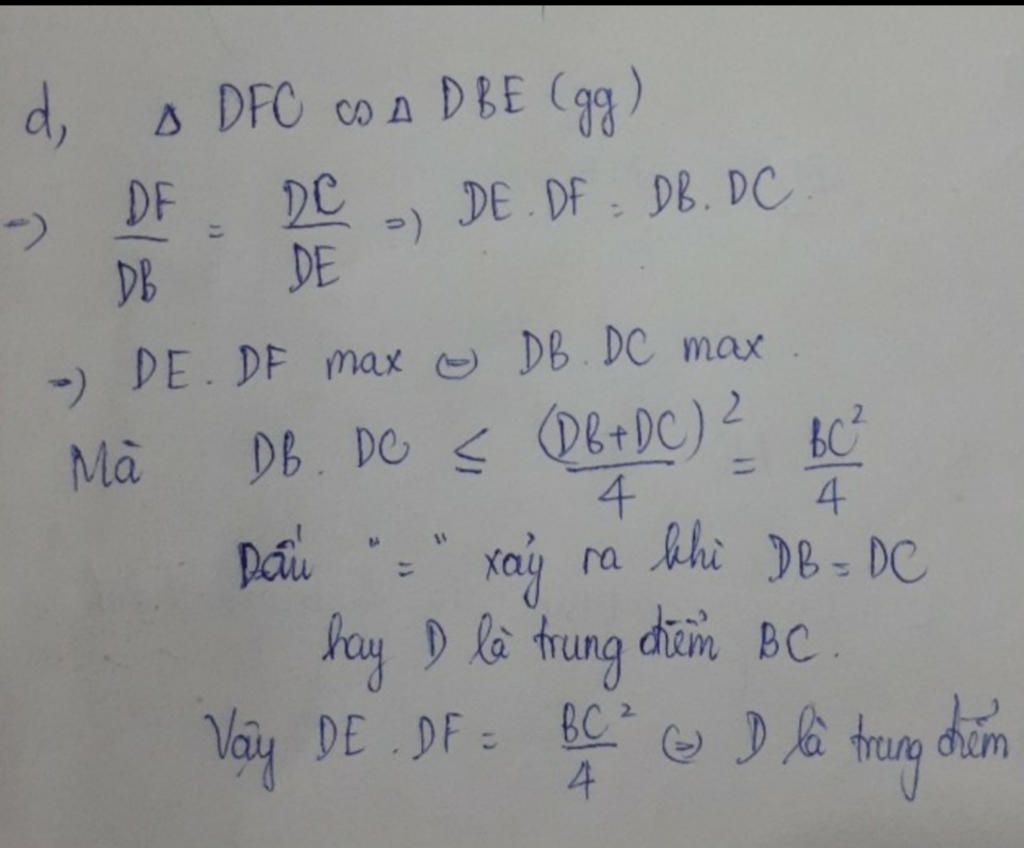 d, Δ DFC ∽ Δ DBE (gg)
=) DF/DB = DC/DE =) DE.DF = DB.DC.
=) DE.DF max (=) DB.DC max.
Mà DB.DC ≤ (DB+DC)²/4 = BC²/4
Dấu "=" xảy ra khi DB = DC
hay D là trung điểm BC.
Vậy DE.DF = BC²/4 (=) D là trung điểm